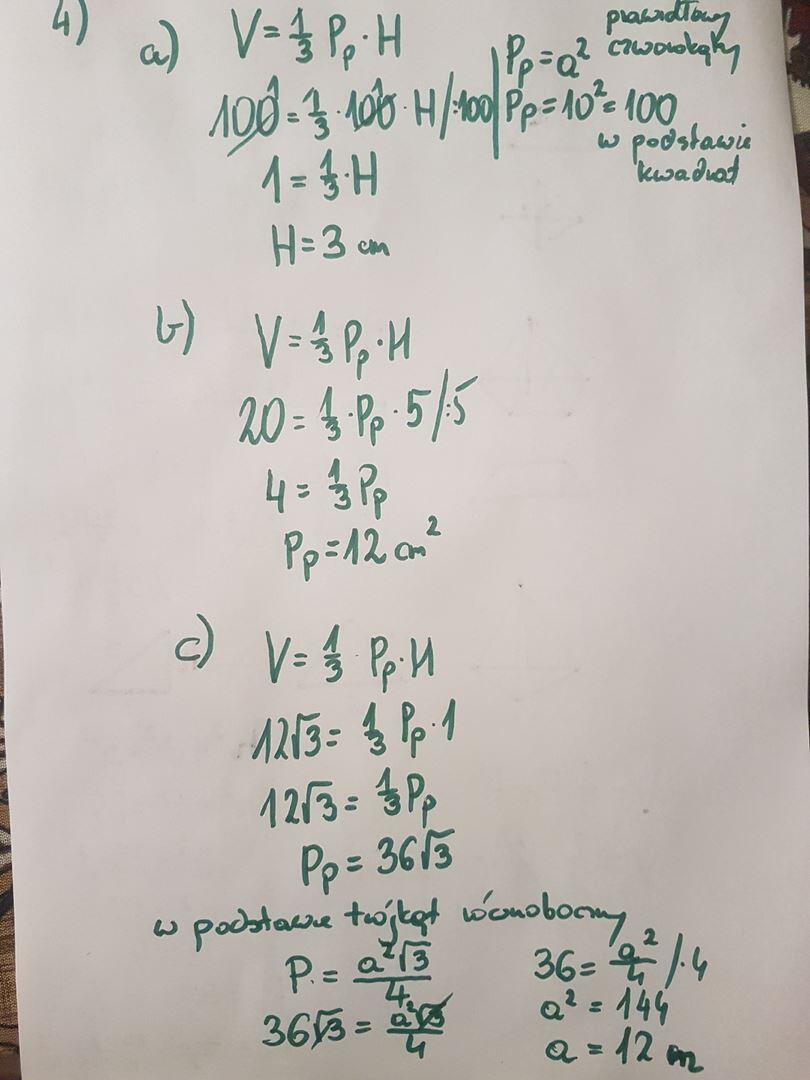 4)
a) V = 1/3 Pp · H
100 = 1/3 · 100 · H /:100
1 = 1/3 · H
H = 3 cm
prawidłowy
czworokątny
Pp = a²
Pp = 10² = 100
w podstawie
kwadrat
b) V = 1/3 Pp · H
20 = 1/3 · Pp · 5 /:5
4 = 1/3 Pp
Pp = 12 cm²
c) V = 1/3 · Pp · H
12√3 = 1/3 Pp · 1
12√3 = 1/3 Pp
Pp = 36√3
w podstawie trójkąt równoboczny
P. = a²√3/4
36√3 = a²√3/4
36 = a²/4 /·4
a² = 144
a = 12 m